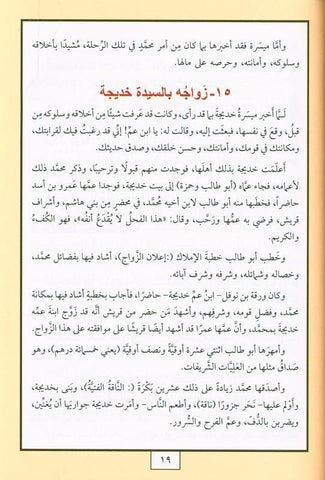 وأمَّا ميسرة فقد أخبرها بما كان مِن أمر محمَّدٍ في تلك الرِّحلة، مُشيدًا بأخلاقه
وسلوكه، وأمانته، وحرصه على مالها.
١٥- زَواجُه بالسيدة خديجة
لمَّا أَخبر ميسرةُ خديجةَ بما قد رأى، وكانت قد عَرفت شيئًا مِن أخلاقه وسلوكه مِن
قبلُ، وقع في نفسها، فبعثت إليه، وقالت له: يا ابن عم! إنِّي قد رغبتُ فيك لقرابتك،
ومكانتك في قومك، وأمانتك، وحسن خلقك، وصدق حديثك.
أعلَمَت خديجة بذلك أهلها، فوجدت منهم قبولًا وترحيبًا، وذكر محمَّد ذلك
لأعمامه، فجاء عمَّاه (أبو طالب وحمزة) إلى بيت خديجة، فوجدا عمَّها عَمرو بن أسد
حاضرًا، فخطبها منه أبو طالب لابن أخيه محمَّد في محضرٍ مِن بني هاشم، وأشراف
قريش، فرضي به عمُّها ورَحَّب، وقال: «هذا الفحلُ لا يُقدَعُ أنفُه»، فهو الكُفءُ
والكريم.
وخَطب أبو طالب خطبة الإملاك (:إعلان الزَّواج)، أشاد فيها بفضائل محمَّد،
وخصاله وشمائله، وشرفه وشرف آبائه.
وكان ورقة بن نوفل- ابنُ عمِّ خديجة- حاضرًا، فأجاب بخطبةٍ أشاد فيها بمكانة
محمَّد، وفضلِ قومه، وشرفِهم، وأشهدَ مَن حضر من قريش أنَّه قد زوَّج ابنةَ عمِّه
خديجةَ بمحمَّد، وأنَّ عمَّها عمرًا قد أشهد أيضًا قريشًا على موافقته على هذا الزَّواج.
وأمهرَها أبو طالب اثنتي عشرة أوقيَّةً ونصف أوقيَّة (يعني خمسمائة درهم)، وهو
صَداقُ مثلها من العَلِيَّات الشَّريفات.
وأصدَقها محمَّد زيادةً على ذلك عشرين بَكْرَةً (: النَّاقة الفتيَّة)، وبَنى بخديجة،
وأَوْلَم عليها- نَحَر جزورًا (ناقة)، وأطعم النَّاس- وأمَرَت خديجة جواريَها أن يُغنِّين،
ويضربن بالدُّفِّ، وعمَّ الفرح والسُّرور.
١٩